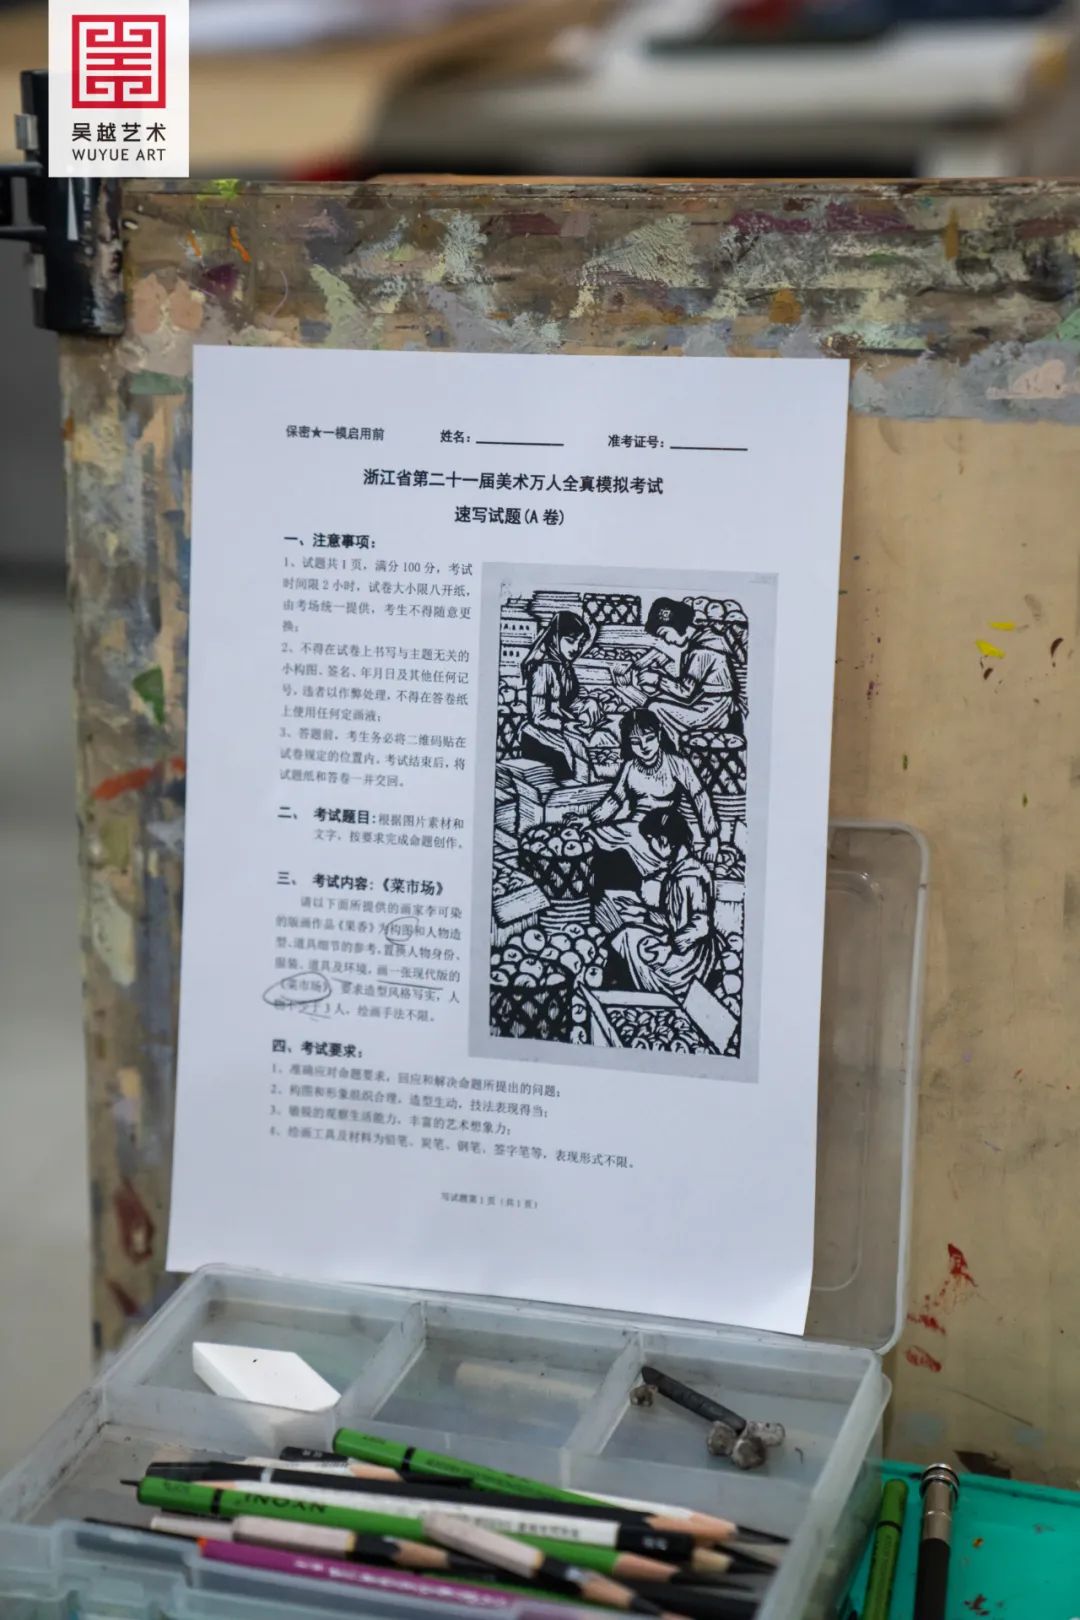 吴越艺术
WUYUE ART
保密★一模启用前 姓名: 准考证号:
浙江省第二十一届美术万人全真模拟考试
速写试题(A卷)
一、注意事项:
1、试题共1页, 满分100分, 考试
时间限2小时, 试卷大小限八开纸,
由考场统一提供, 考生不得随意更
换;
2、不得在试卷上书写与主题无关的
小构图、签名、年月日及其他任何记
号, 违者以作弊处理, 不得在答卷纸
上使用任何定画液;
3、答题前, 考生务必将二维码贴在
试卷规定的位置内, 考试结束后, 将
试题纸和答卷一并交回。
二、 考试题目:根据图片素材和
文字, 按要求完成命题创作。
三、 考试内容:《菜市场》
请以下面所提供的画家李可染
的版画作品《果香》为构图和人物造
型、道具细节的参考, 置换人物身份、
服装、道具及环境, 画一张现代版的
《菜市场》 要求造型风格写实, 人
3人, 绘画手法不限。
四、考试要求:
1、准确应对命题要求, 回应和解决命题所提出的问题;
2、构图和形象组织合理, 造型生动, 技法表现得当;
3、敏锐的观察生活能力, 丰富的艺术想象力;
4、绘画工具及材料为铅笔、炭笔、钢笔、签字笔等, 表现形式不限。
写试题第1页(共1页)